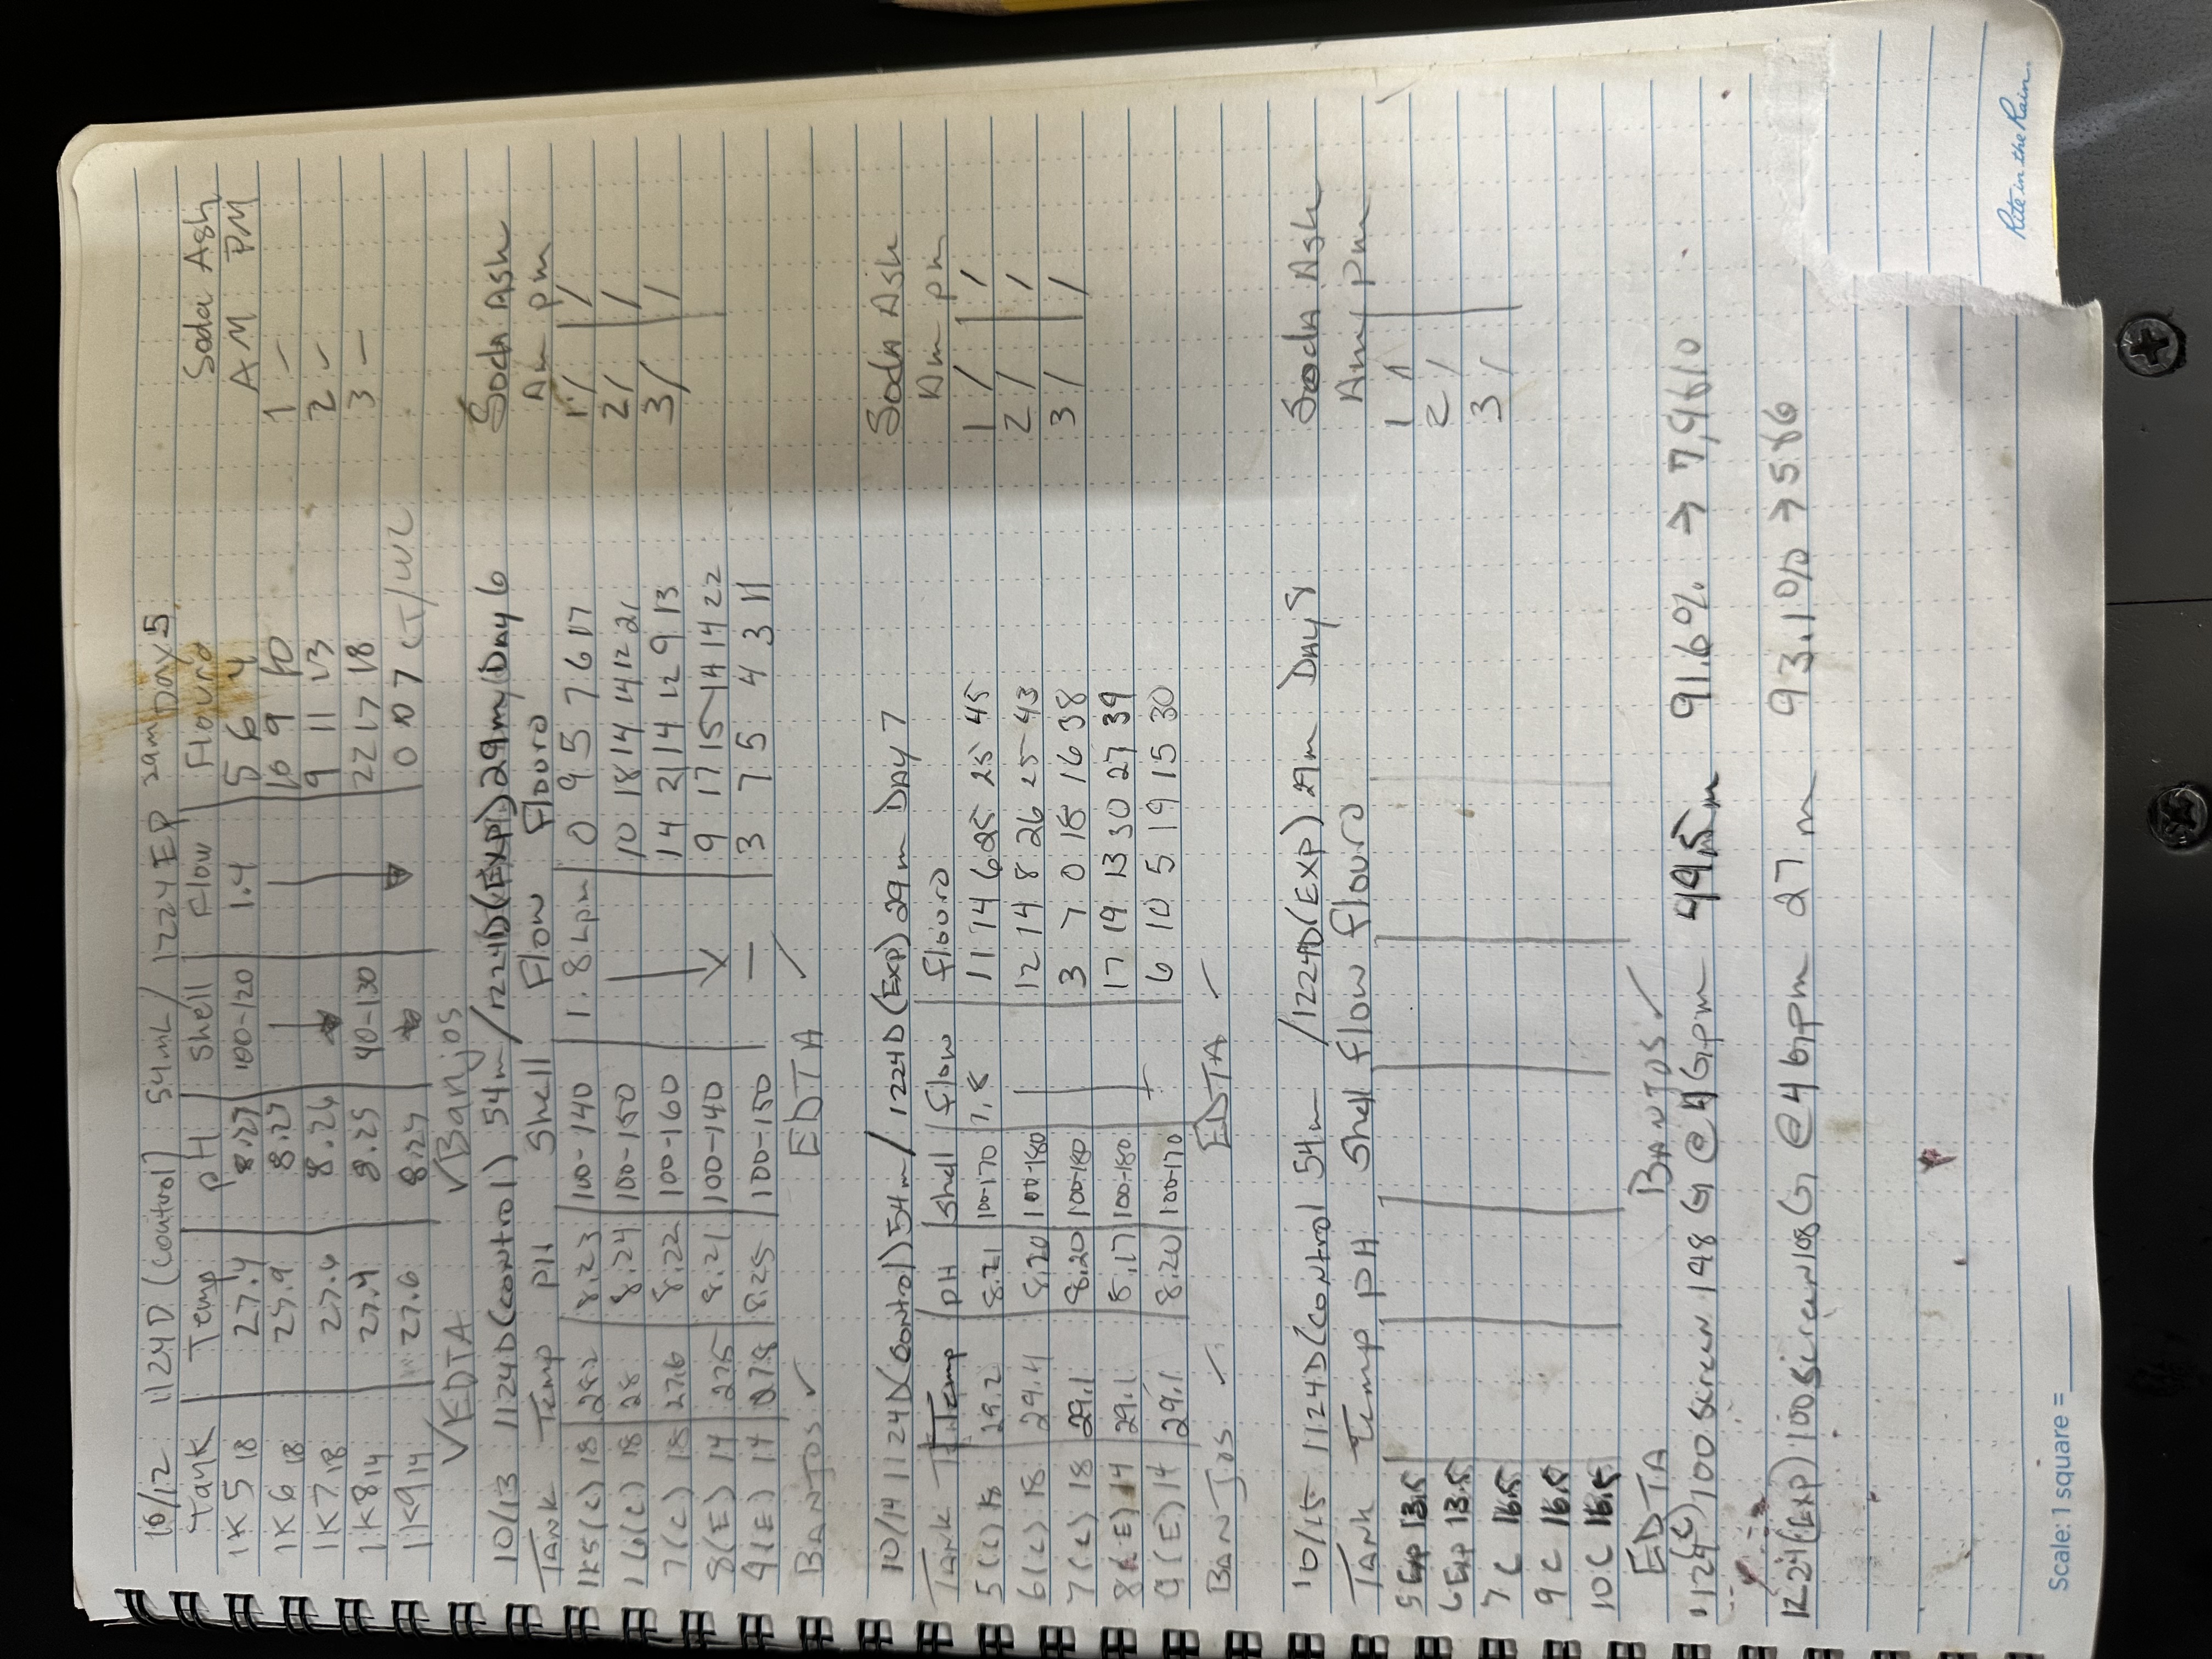 10/12 1124D (control) 54mL / 1224EP 29m Day 5
Tank Temp pH Shell Flow Flouro Soda Ash
1K5 18 27.4 8.27 100-120 1.4 5 6 4 AM PM
1K6 18 8.27 10 9 10 1 -
1K7 18 27.6 8.26 9 11 13 2 -
1K8 14 27.4 8.25 90-130 22 17 18 3 -
1K9 14 27.6 8.27 0 10 7
✓EDTA ✓Banjos
10/13 1124D(control) 54m/1224D(EXP) 29m/Day 6 Soda Ash
TANK Temp PH Shell Flow Flouro Am pm
1K5(C) 18 28.2 8.23 100-140 1.8Lpm 0 9 5 7 6 17 1 / /
1 6(C) 18 28 8.24 100-150 10 18 14 14 12 21 2 / /
7(C) 18 27.6 8.22 100-160 14 21 14 12 9 13 3 / /
8(E) 14 27.5 8.21 100-140 9 17 15 14 14 22
9(E) 14 27.8 8.25 100-150 - 3 7 5 4 3 11
BANJOS ✓ EDTA ✓
10/14 1124D(control) 54m/ 1224D(EXP) 29m DAY 7 Soda Ash
TANK Temp pH Shell flow flouro Am pm
5(C) 18 29.2 8.21 100-170 1.8 11 14 6 25 25 45 1 / /
6(C) 18 29.4 8.20 100-180 12 14 8 26 25 43 2 / /
7(C) 18 29.1 8.20 100-180 3 7 0 18 16 38 3 / /
8(E) 14 29.1 8.17 100-180 17 19 13 30 27 39
9(E) 14 29.1 8.20 100-170 6 10 5 19 15 30
BANJOS ✓ EDTA ✓
10/15 1124D(control 54m /1224D(EXP) 29m DAY 8 Soda Ash
TANK Temp PH Shell flow flouro Am pm
5 Exp 13.5 1 /
6 Exp 13.5 2 /
7 C 16.5 3 /
9 C 16.5
10 C 16.5
EDTA BANJOS ✓
1124(C) 100 screen 198 G @ 4 Gpm 49.5m 91.6% →
1224(EXP) 100 screen 108 G @ 4 Gpm 27m 93.1% → 586
Rite in the Rain.
Scale: 1 square =